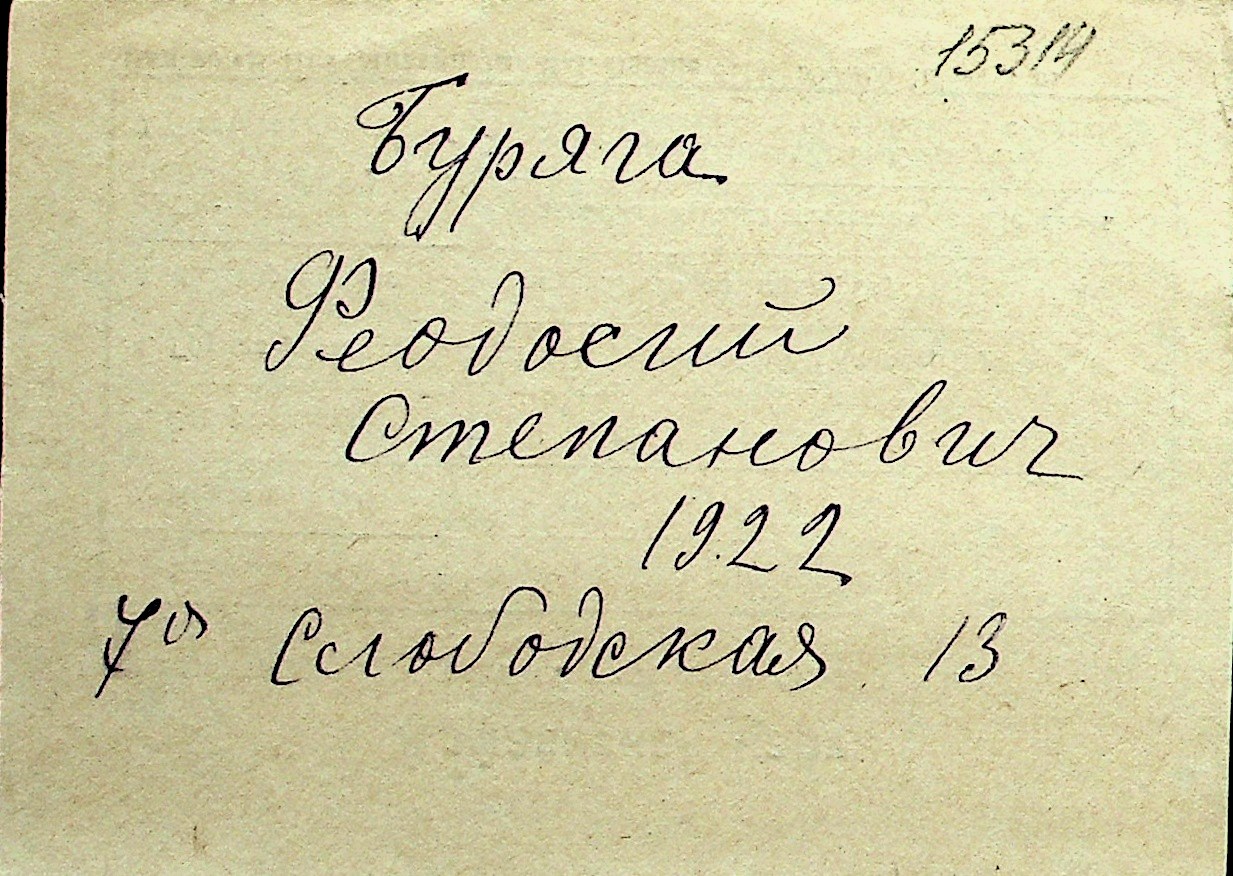 15314
Буряга
Феодосий
Степанович
1922
7ая Слободская 13